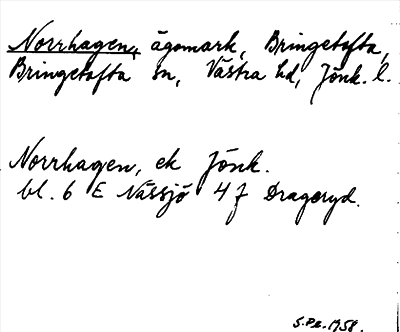 Norrhagen, ägomark, Bringetofta,
Bringetofta sn, Västra hd, Jönk. l.
Norrhagen, ek Jönk.
bl. 6 E Nässjö 4 f Drageryd.
S.Pr. 1958.